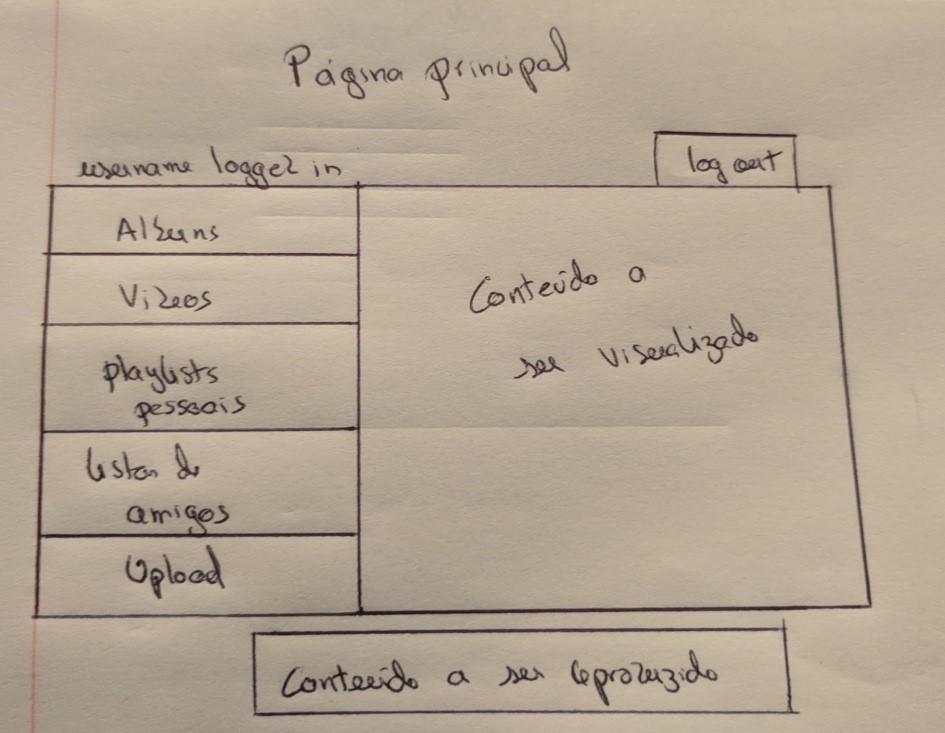 Página principal
username logged in
log out
Albuns
Videos
playlists
pessoais
lista de
amigos
Upload
Conteúdo a
ser visualizado
Conteúdo a ser reproduzido